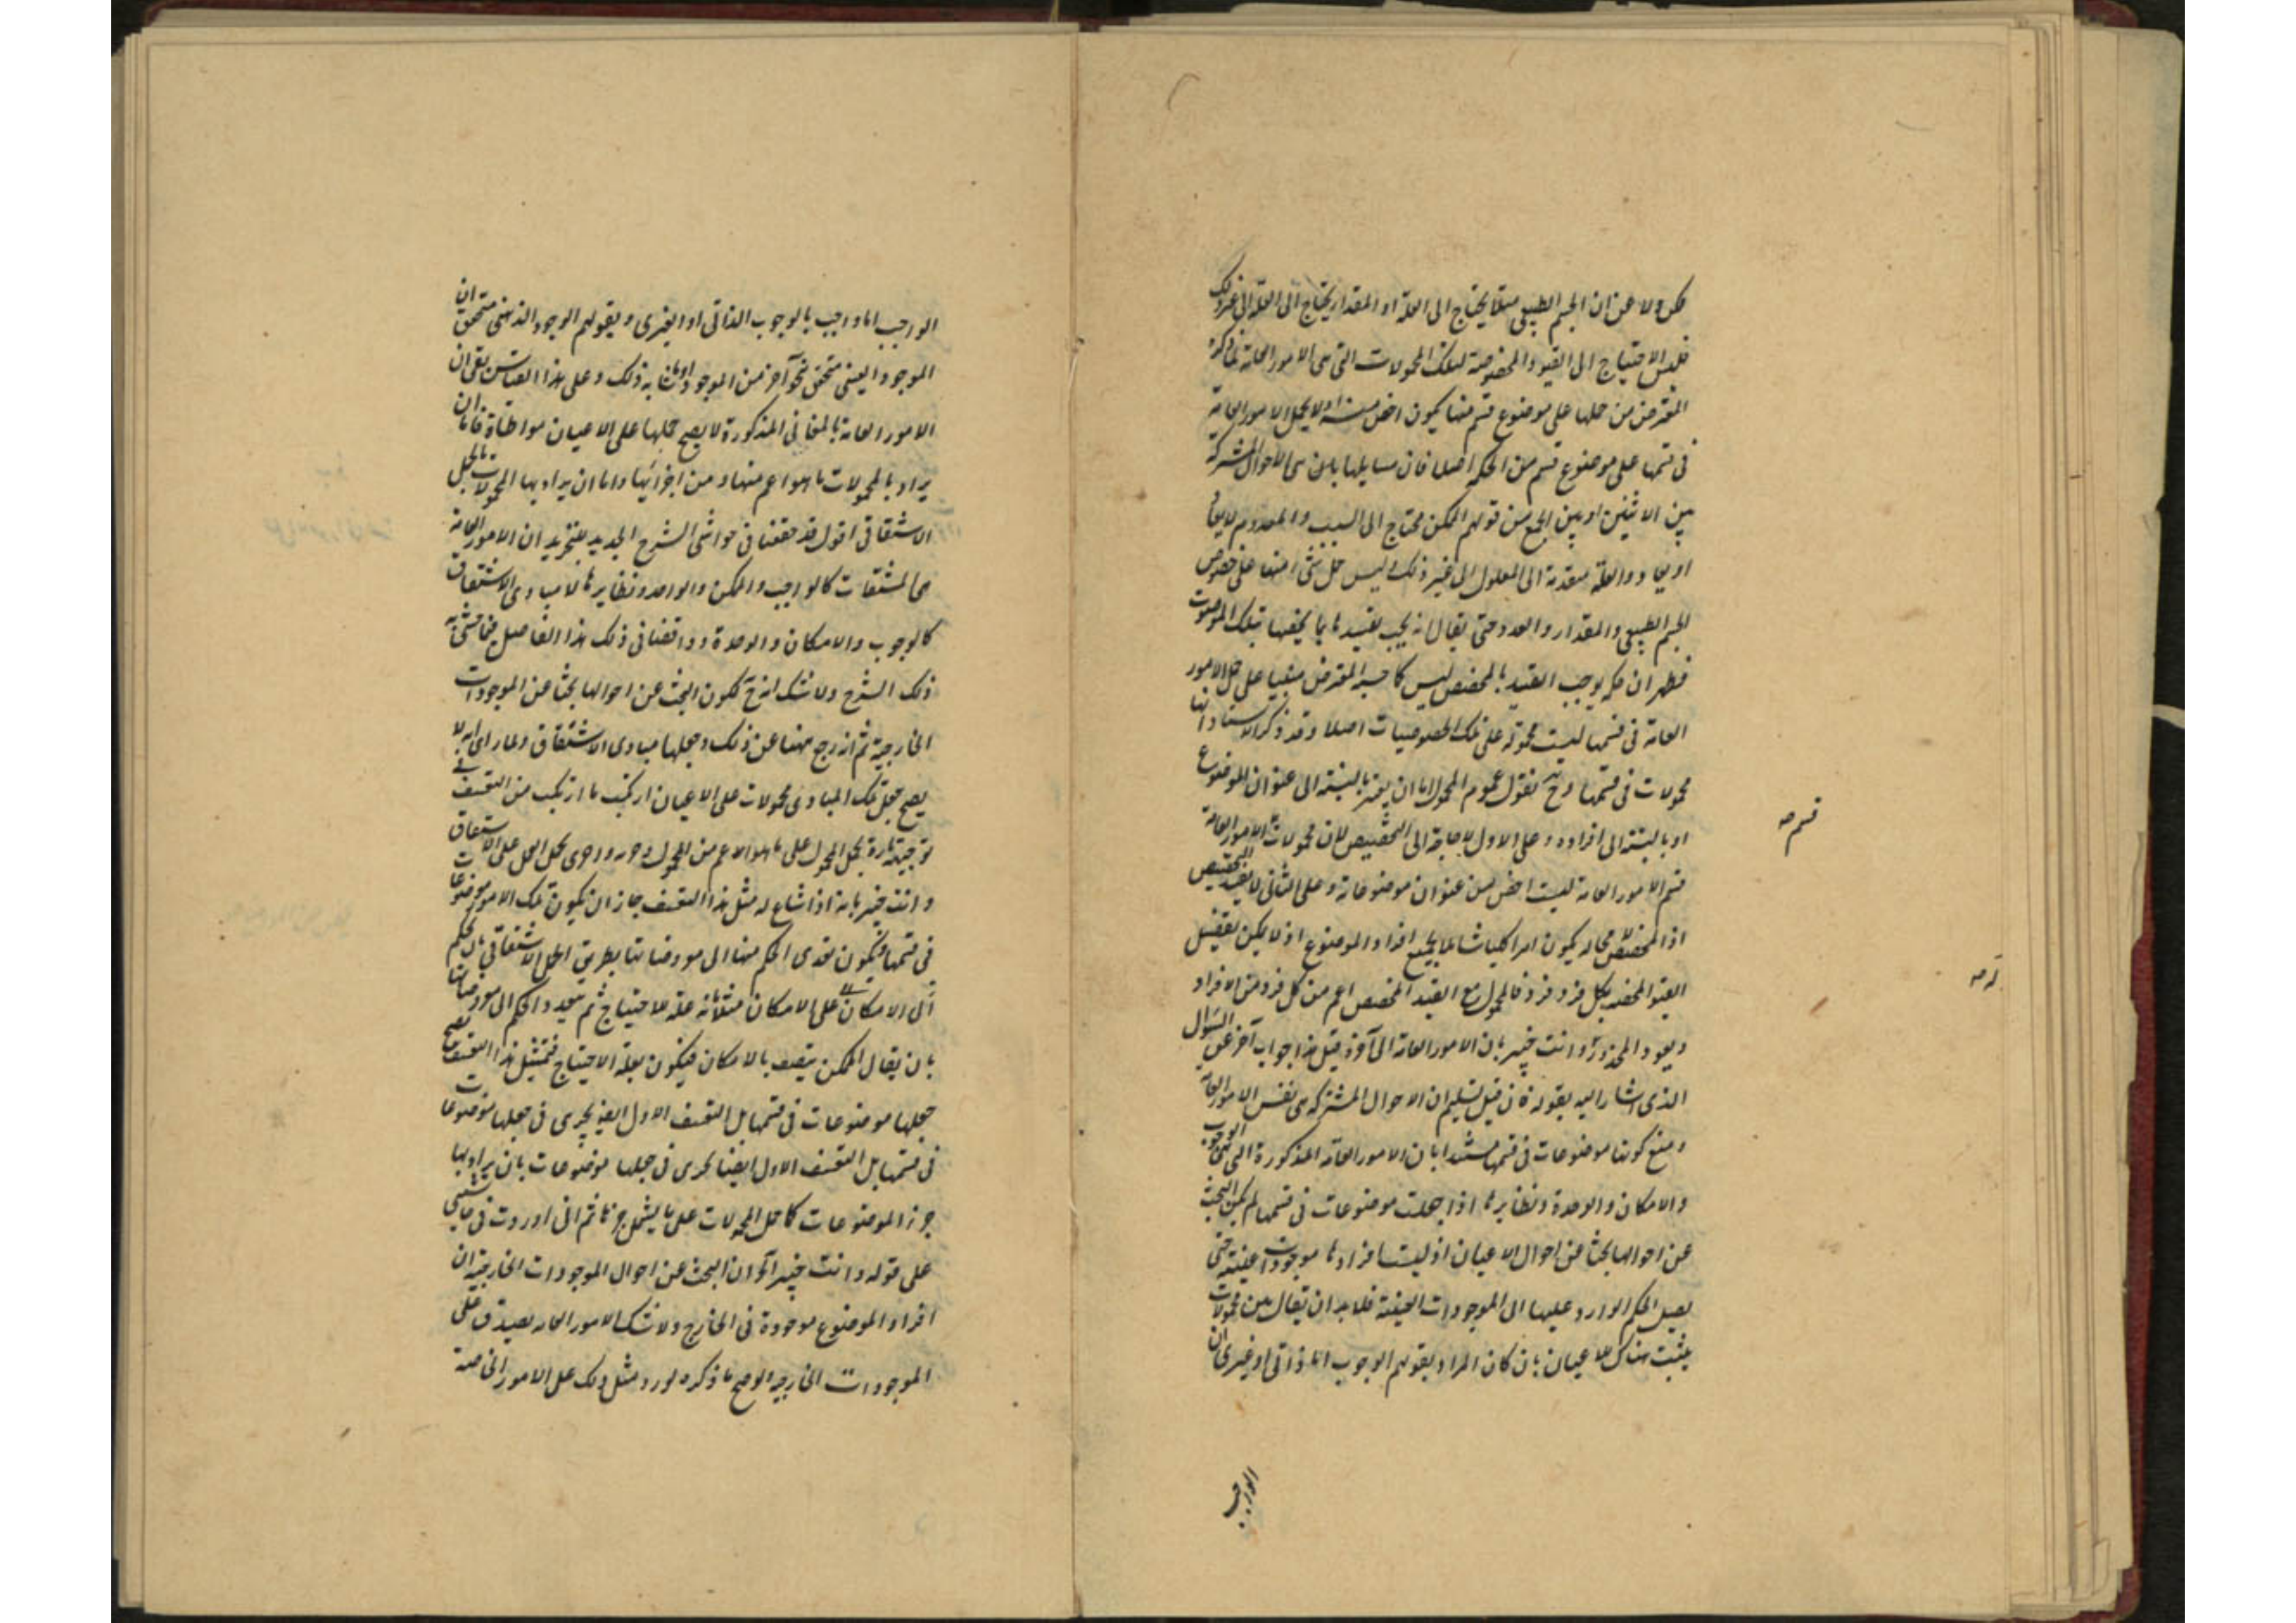 ولا عن ان الجسم الطبيعي مثلا يحتاج الى العلة او المقدار يحتاج الى العلة الى غير ذلك
فليس الاحتياج الى القيود المخصصة لتلك المحمولات التى هى الامور العامة لما ذكره
المعترض من حملها على موضوع قسم منها يكون اخص منه اذ لا يحمل الامور العامة
فى قسمها على موضوع قسم من الحكمة اصلا فان مسايلها بان هى الاحوال المشتركة
بين الاثنين او بين الجمع من قولهم الممكن محتاج الى السبب والمعدوم لا يعاد
او يعاد والعلة متقدمة الى المعلول الى غير ذلك وليس حمل شئ منها على خصوص
الجسم الطبيعى والمقدار والعدد حتى يقال انه يجب تقييدها بما يخصها بتلك الموضوعات
فظهر ان ما يوجب التقييد بالمخصص ليس كما حسبه المعترض مبنيا على حمل الامور
العامة فى قسمها ليست محمولة على تلك الخصوصيات اصلا وقد ذكر الاستاد انها
محمولات فى قسمها وح نقول عموم المحمول اما ان يعتبر بالنسبة الى عنوان الموضوع
او بالنسبة الى افراده وعلى الاول لا حاجة الى التخصيص لان محمولات الامور العامة
قسم الامور العامة ليست اخص من عنوان موضوعاته وعلى الثانى لا يفيد التخصيص
اذ المخصص لا محالة يكون امرا كليا شاملا لجميع افراد الموضوع اذ لا يمكن تفصيل
القيود المخصصة بكل فرد فرد فالمحمول مع القيد المخصص اعم من كل فرد من الافراد
ويعود المحذور وانت خبير بان الامور العامة الى آخره قيل هذا جواب آخر عن السؤال
الذى اشار اليه بقوله فان قيل تسليم ان الاحوال المشتركة هى نفس الامور العامة
ومنع كونها موضوعات فى قسمها مستندا بان الامور العامة المذكورة التى هى الوجوب
والامكان والوحدة ونظايرها اذا جعلت موضوعات فى قسمها لم يكن البحث
عن احوالها بحثا عن احوال الاعيان اذ ليست افرادها موجودات عينية حتى
يصل الحكم الوارد عليها الى الموجودات العينية فلا بد ان يقال هن محمولات
يثبت هناك للاعيان بان كان المراد بقولهم الوجوب اما ذاتى او غيرى ان
الواجب
قسم صه
له صه
الواجب اما واجب بالوجوب الذاتى او الغيرى وبقولهم الوجود الذهنى متحقق ان
الموجود العينى متحقق نحو آخر من الموجود او ما شابه ذلك وعلى هذا القياس بقى ان
الامور العامة بالمعانى المذكورة لا يصح حملها على الاعيان مواطاة فاما ان
يراد بالمحمولات ما هو اعم منها ومن اجزائها واما ان يراد بها المحمولات بالحمل
الاشتقاقى اقول قد حققنا فى حواشى الشرح الجديد للتجريد ان الامور العامة
هى المشتقات كالواجب والممكن والواحد ونظايرها لا مبادى الاشتقاق
كالوجوب والامكان والوحدة ووافقنا فى ذلك هذا الفاضل فيما حشى به
ذلك الشرح ولا شك انه ح يكون البحث عن احوالها بحثا عن الموجودات
الخارجية ثم انه رجع ههنا عن ذلك وجعلها مبادى الاشتقاق ولما راى انه لا
يصح جعل تلك المبادى محمولات على الاعيان ارتكب ما ارتكب من التعسف فى
توجيهه تارة بحمل المحمول على ما هو الاعم من المحمول وجزءه واخرى بحمل الحمل على الاشتقاق
وانت خبير بانه اذا شاع له مثل هذا التعسف جاز ان يكون تلك الامور موضوعات
فى قسمها ويكون تعدى الحكم منها الى معروضاتها بطريق الحمل الاشتقاقى بان يحكم
على الامكان مثلا بانه علة للاحتياج ثم يتعدد الحكم الى معروضاتها
بان يقال الممكن يتصف بالامكان فيكون بعلة الاحتياج فبمثل هذا التعسف يصح
جعلها موضوعات فى قسمها بل التعسف الاول ايضا يجرى فى جعلها موضوعات
فى قسمها بل التعسف الاول ايضا يجرى فى جعلها موضوعات بان يراد بها
جزء الموضوعات كما حمل المحمولات على ما يشمل جزءها ثم انى اوردت فى حاشيتى
على قوله وانت خبير الى آخره ان البحث عن احوال الموجودات الخارجية ان
افراد الموضوع موجودة فى الخارج ولا شك الامور العامة يصدق على
الموجودات الخارجية لو صح ما ذكره لورد مثل ذلك على الامور الخاصة